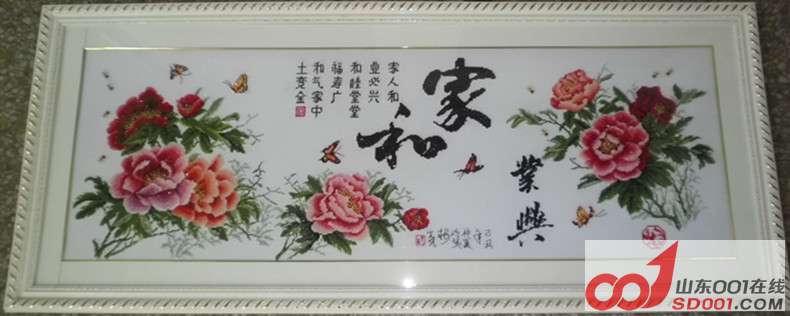 家和
業興
家人和
業必兴
和睦堂堂
福寿广
和气家中
土变金
山东001在线
SD001.com